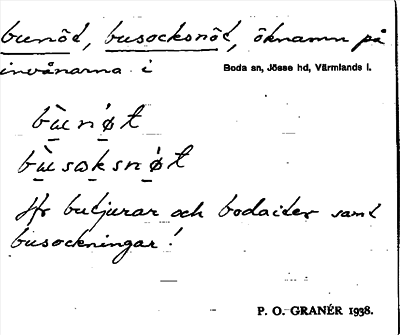 bunöt, busocksnöt, öknamn på
invånarna i Boda sn, Jösse hd, Värmlands l.
bùn´øt
bùsωksn´øt
Jfr butjurar och bodaiter samt
busockningar!
P. O. GRANÉR 1938.